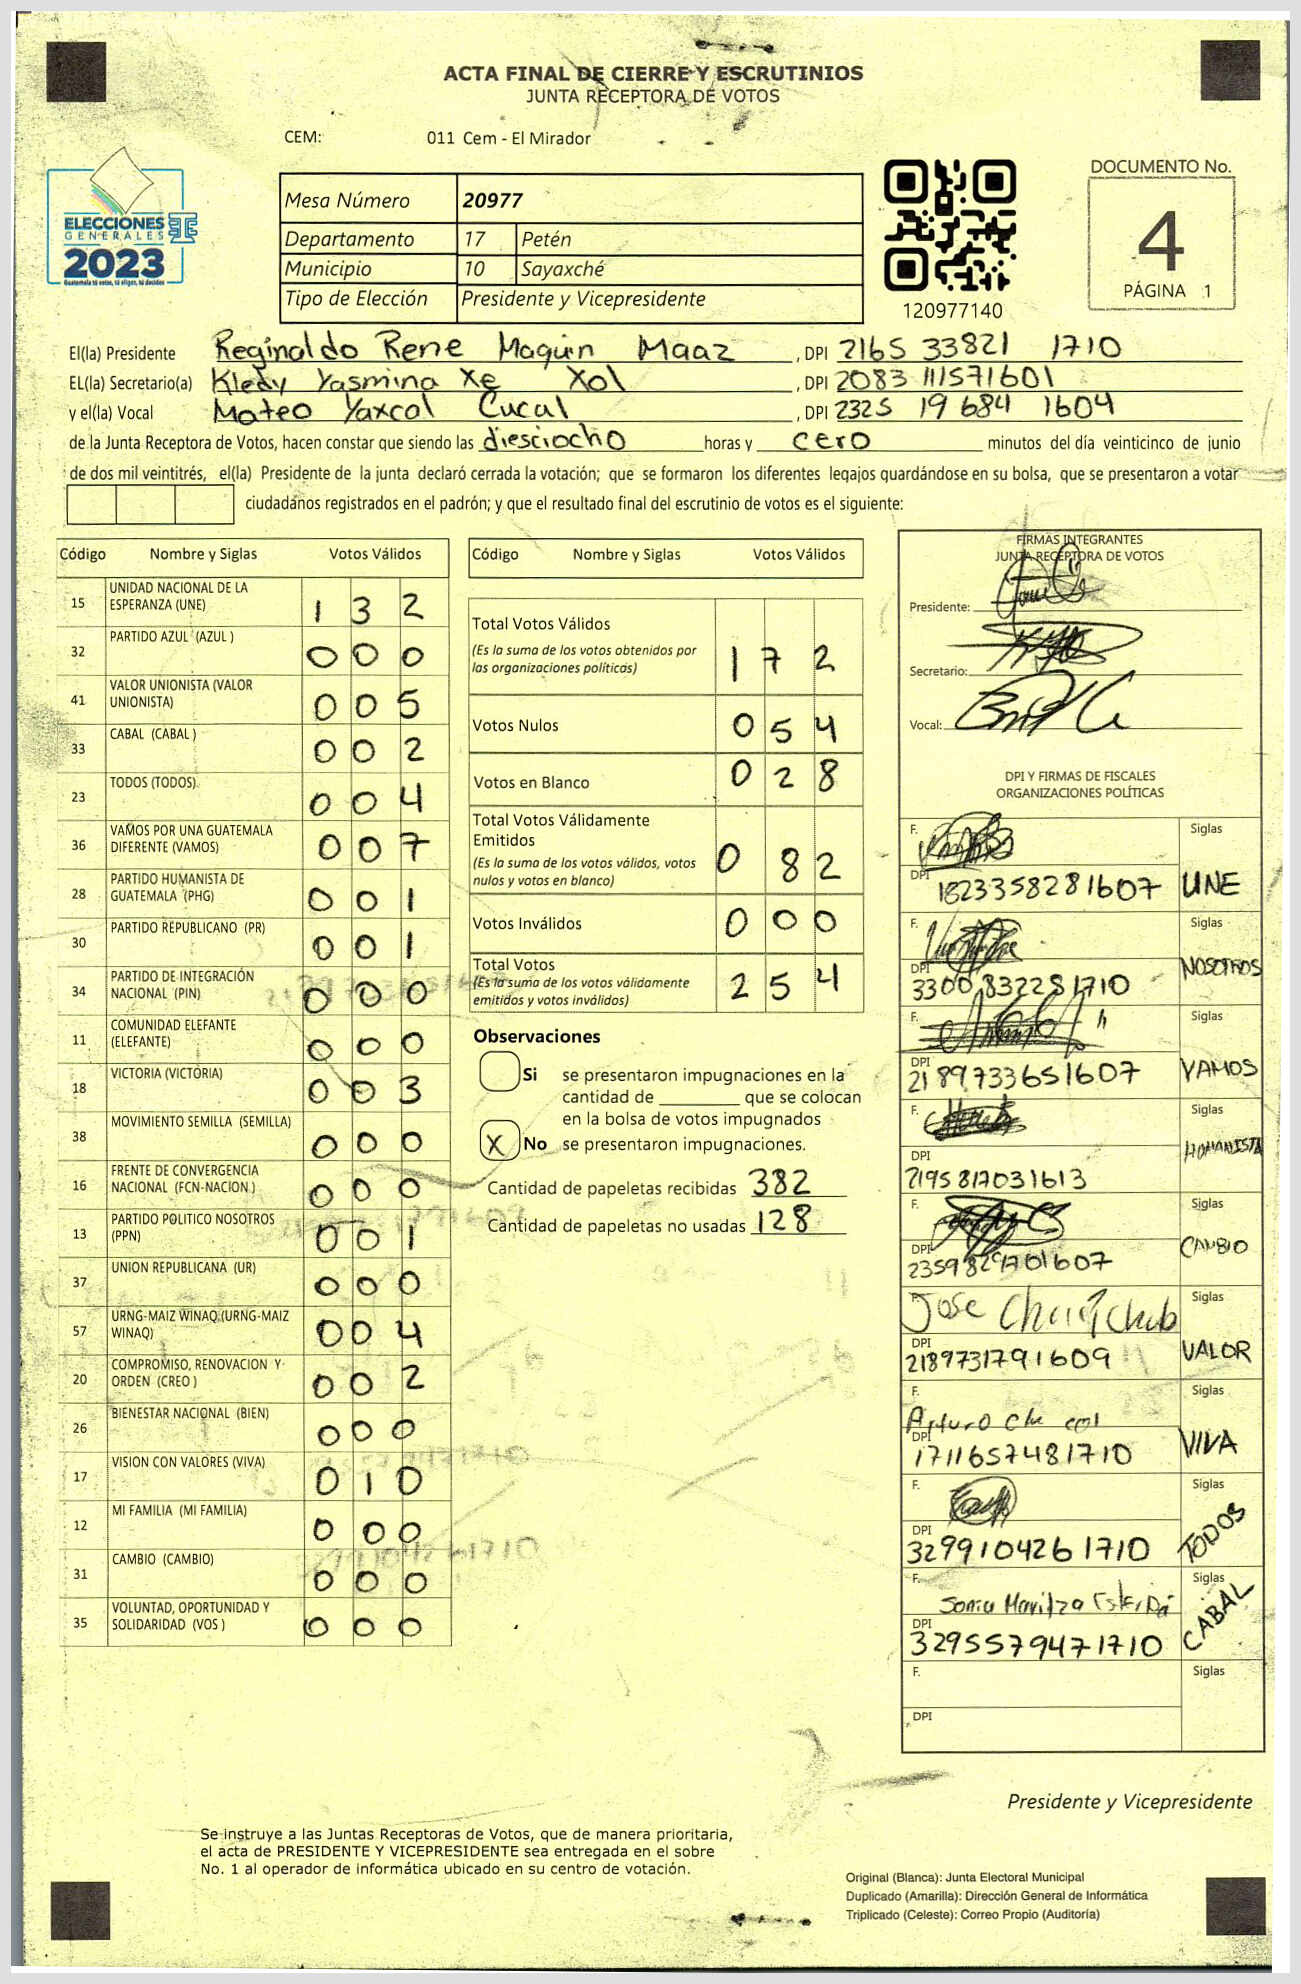 ACTA FINAL DE CIERRE Y ESCRUTINIOS
JUNTA RECEPTORA DE VOTOS
CEM: 011 Cem - El Mirador
ELECCIONES
GENERALES
2023
Guatemala tú votas, tú eliges, tú decides
Mesa Número 20977
Departamento 17 Petén
Municipio 10 Sayaxché
Tipo de Elección Presidente y Vicepresidente
120977140
DOCUMENTO No.
4
PÁGINA 1
El(la) Presidente Reginaldo Rene Maquin Maaz , DPI 2165 33821 1710
EL(la) Secretario(a) Kledy Yasmina Xe Xol , DPI 2083 111571601
y el(la) Vocal Mateo Yaxcal Cucal , DPI 2325 19 684 1604
de la Junta Receptora de Votos, hacen constar que siendo las diesciocho horas y cero minutos del día veinticinco de junio
de dos mil veintitrés, el(la) Presidente de la junta declaró cerrada la votación; que se formaron los diferentes legajos guardándose en su bolsa, que se presentaron a votar
ciudadanos registrados en el padrón; y que el resultado final del escrutinio de votos es el siguiente:
Código Nombre y Siglas Votos Válidos
15 UNIDAD NACIONAL DE LA ESPERANZA (UNE) 1 3 2
32 PARTIDO AZUL (AZUL ) 0 0 0
41 VALOR UNIONISTA (VALOR UNIONISTA) 0 0 5
33 CABAL (CABAL ) 0 0 2
23 TODOS (TODOS) 0 0 4
36 VAMOS POR UNA GUATEMALA DIFERENTE (VAMOS) 0 0 7
28 PARTIDO HUMANISTA DE GUATEMALA (PHG) 0 0 1
30 PARTIDO REPUBLICANO (PR) 0 0 1
34 PARTIDO DE INTEGRACIÓN NACIONAL (PIN) 0 0 0
11 COMUNIDAD ELEFANTE (ELEFANTE) 0 0 0
18 VICTORIA (VICTORIA) 0 0 3
38 MOVIMIENTO SEMILLA (SEMILLA) 0 0 0
16 FRENTE DE CONVERGENCIA NACIONAL (FCN-NACION ) 0 0 0
13 PARTIDO POLITICO NOSOTROS (PPN) 0 0 1
37 UNION REPUBLICANA (UR) 0 0 0
57 URNG-MAIZ WINAQ (URNG-MAIZ WINAQ) 0 0 4
20 COMPROMISO, RENOVACION Y ORDEN (CREO ) 0 0 2
26 BIENESTAR NACIONAL (BIEN) 0 0 0
17 VISION CON VALORES (VIVA) 0 1 0
12 MI FAMILIA (MI FAMILIA) 0 0 0
31 CAMBIO (CAMBIO) 0 0 0
35 VOLUNTAD, OPORTUNIDAD Y SOLIDARIDAD (VOS ) 0 0 0
Código Nombre y Siglas Votos Válidos
Total Votos Válidos 1 7 2
(Es la suma de los votos obtenidos por
las organizaciones políticas)
Votos Nulos 0 5 4
Votos en Blanco 0 2 8
Total Votos Válidamente
Emitidos 0 8 2
(Es la suma de los votos válidos, votos
nulos y votos en blanco)
Votos Inválidos 0 0 0
Total Votos 2 5 4
(Es la suma de los votos válidamente
emitidos y votos inválidos)
Observaciones
Si se presentaron impugnaciones en la
cantidad de ________ que se colocan
en la bolsa de votos impugnados
X No se presentaron impugnaciones.
Cantidad de papeletas recibidas 382
Cantidad de papeletas no usadas 128
FIRMAS INTEGRANTES
JUNTA RECEPTORA DE VOTOS
Presidente:
Secretario:
Vocal:
DPI Y FIRMAS DE FISCALES
ORGANIZACIONES POLÍTICAS
F. Siglas
DPI 1823358281607 UNE
F. Siglas
DPI 3300832281710 NOSOTROS
F. Siglas
DPI 2189733651607 VAMOS
F. Siglas
DPI 2195817031613 HUMANISTA
F. Siglas
DPI CAMBIO
F. Jose Siglas
DPI 2189731791609 VALOR
F. Arturo Siglas
DPI 1711657481710 VIVA
F. Siglas
DPI 3299104261710 TODOS
F. Sonia Maritza Siglas
DPI 3295579471710 CABAL
F. Siglas
DPI
Presidente y Vicepresidente
Se instruye a las Juntas Receptoras de Votos, que de manera prioritaria,
el acta de PRESIDENTE Y VICEPRESIDENTE sea entregada en el sobre
No. 1 al operador de informática ubicado en su centro de votación.
Original (Blanca): Junta Electoral Municipal
Duplicado (Amarilla): Dirección General de Informática
Triplicado (Celeste): Correo Propio (Auditoría)